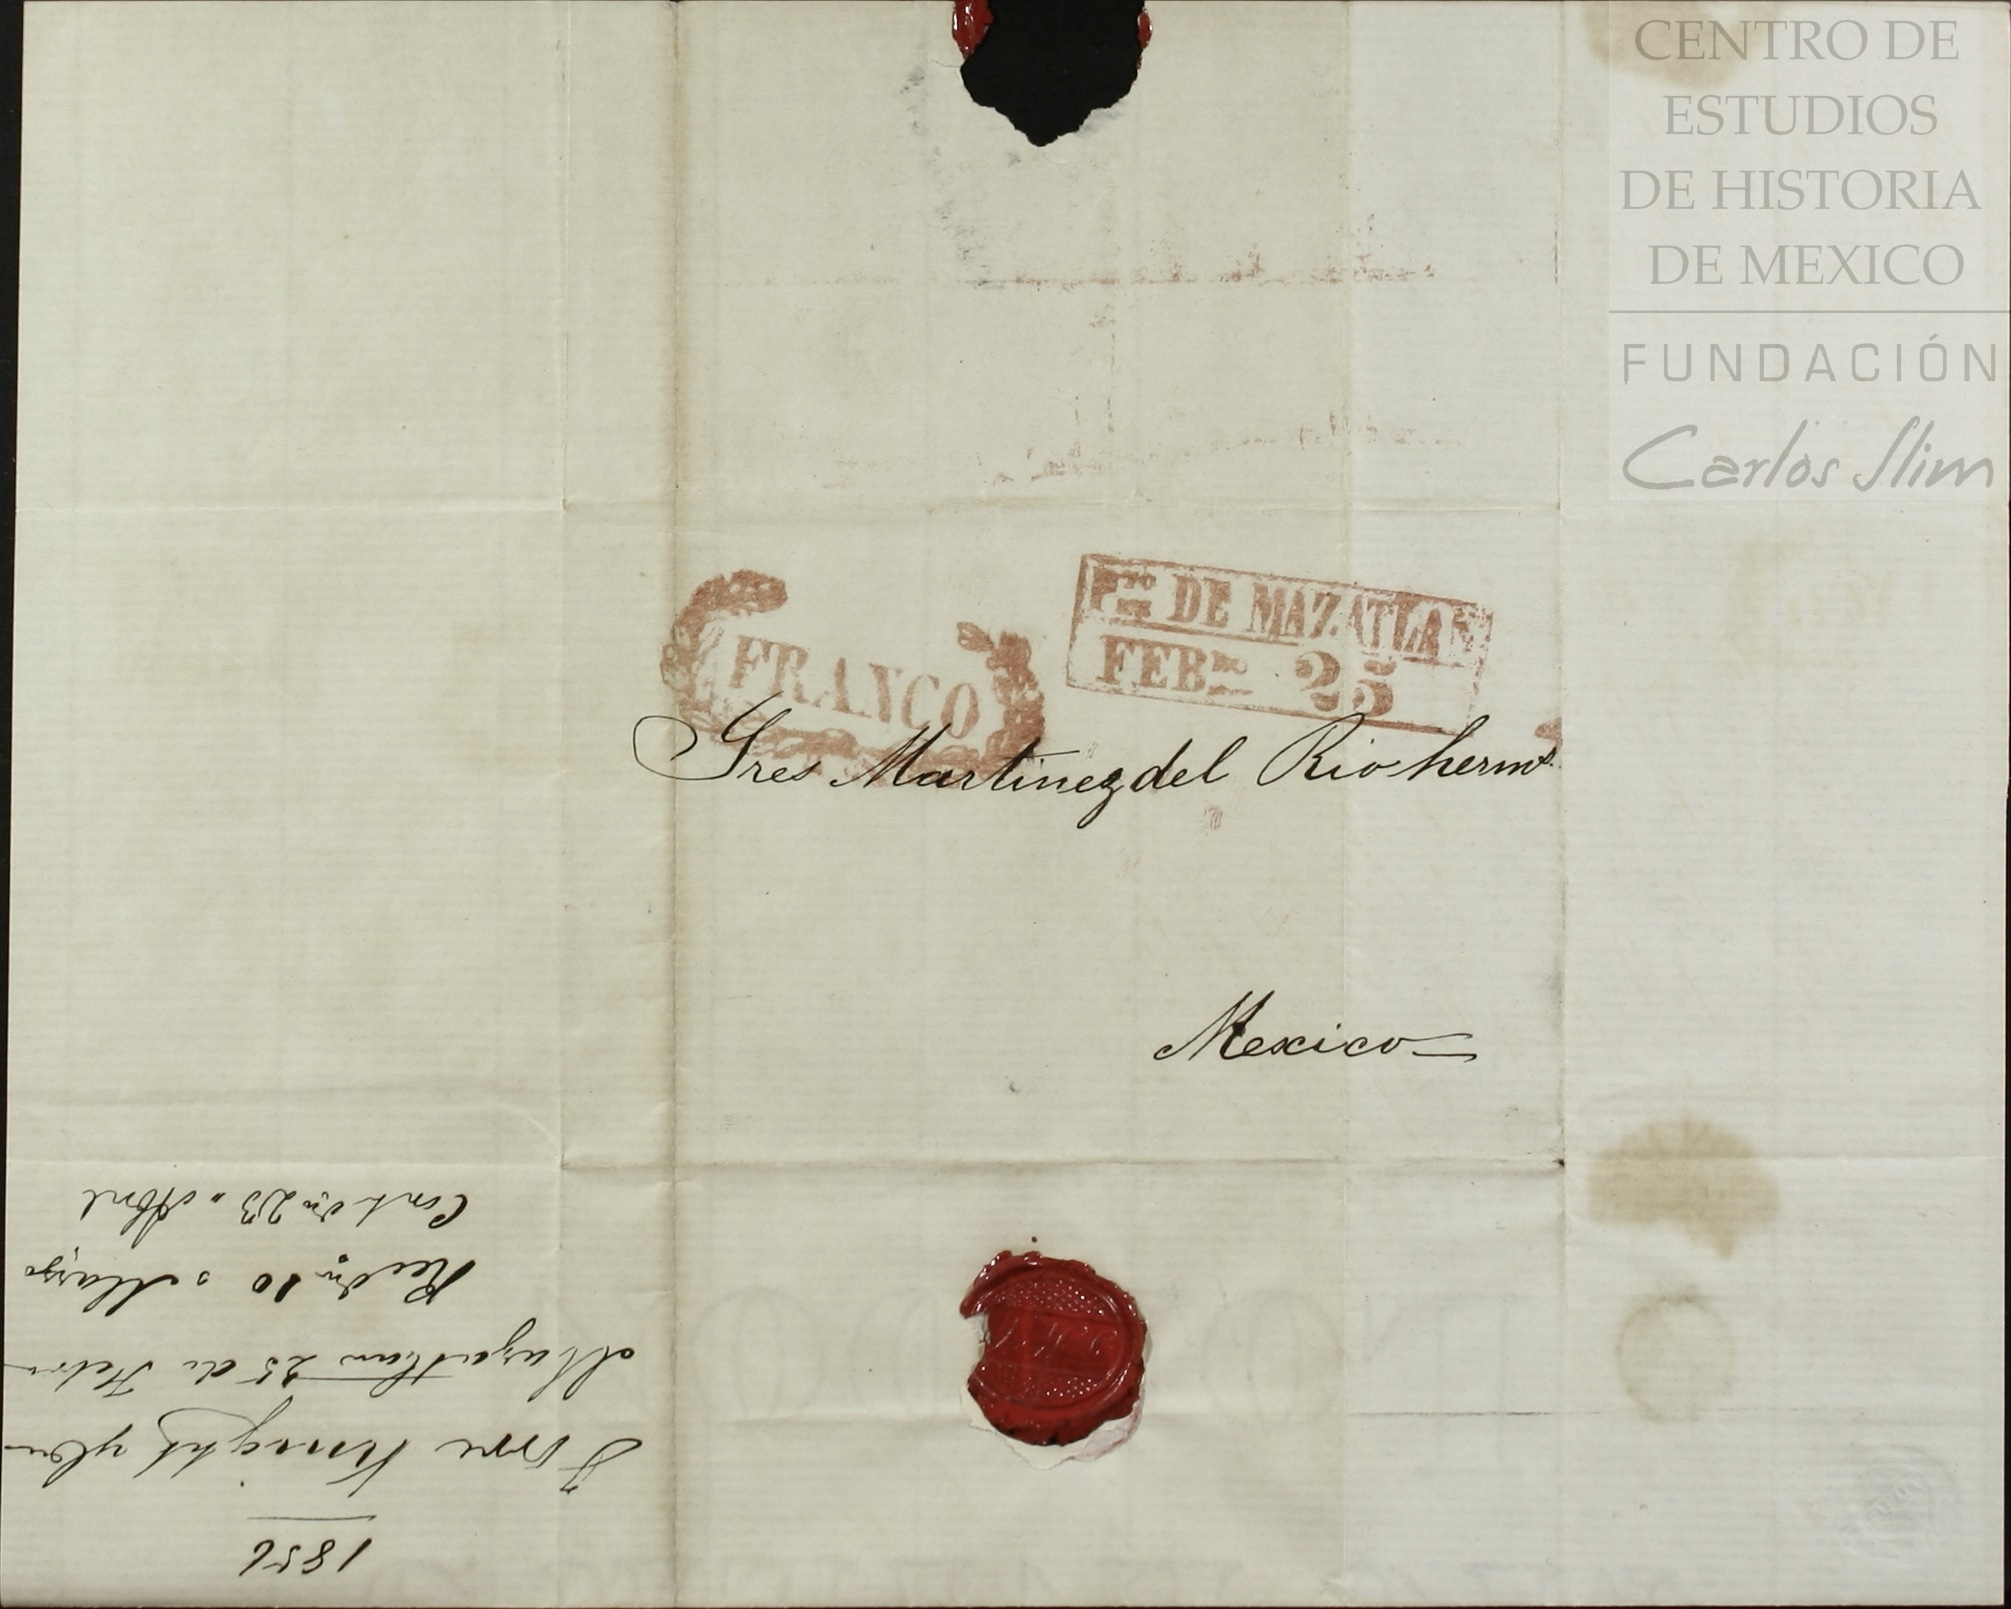 CENTRO DE
ESTUDIOS
DE HISTORIA
DE MEXICO
FUNDACIÓN
Carlos Slim
FRANCO
Pto DE MAZATLAN
FEBro 25
Sres Martinez del Rio herms
Mexico
1856
Knight
Mazatlan 25 de Febro
10 Marzo
Cont 23 " Abril